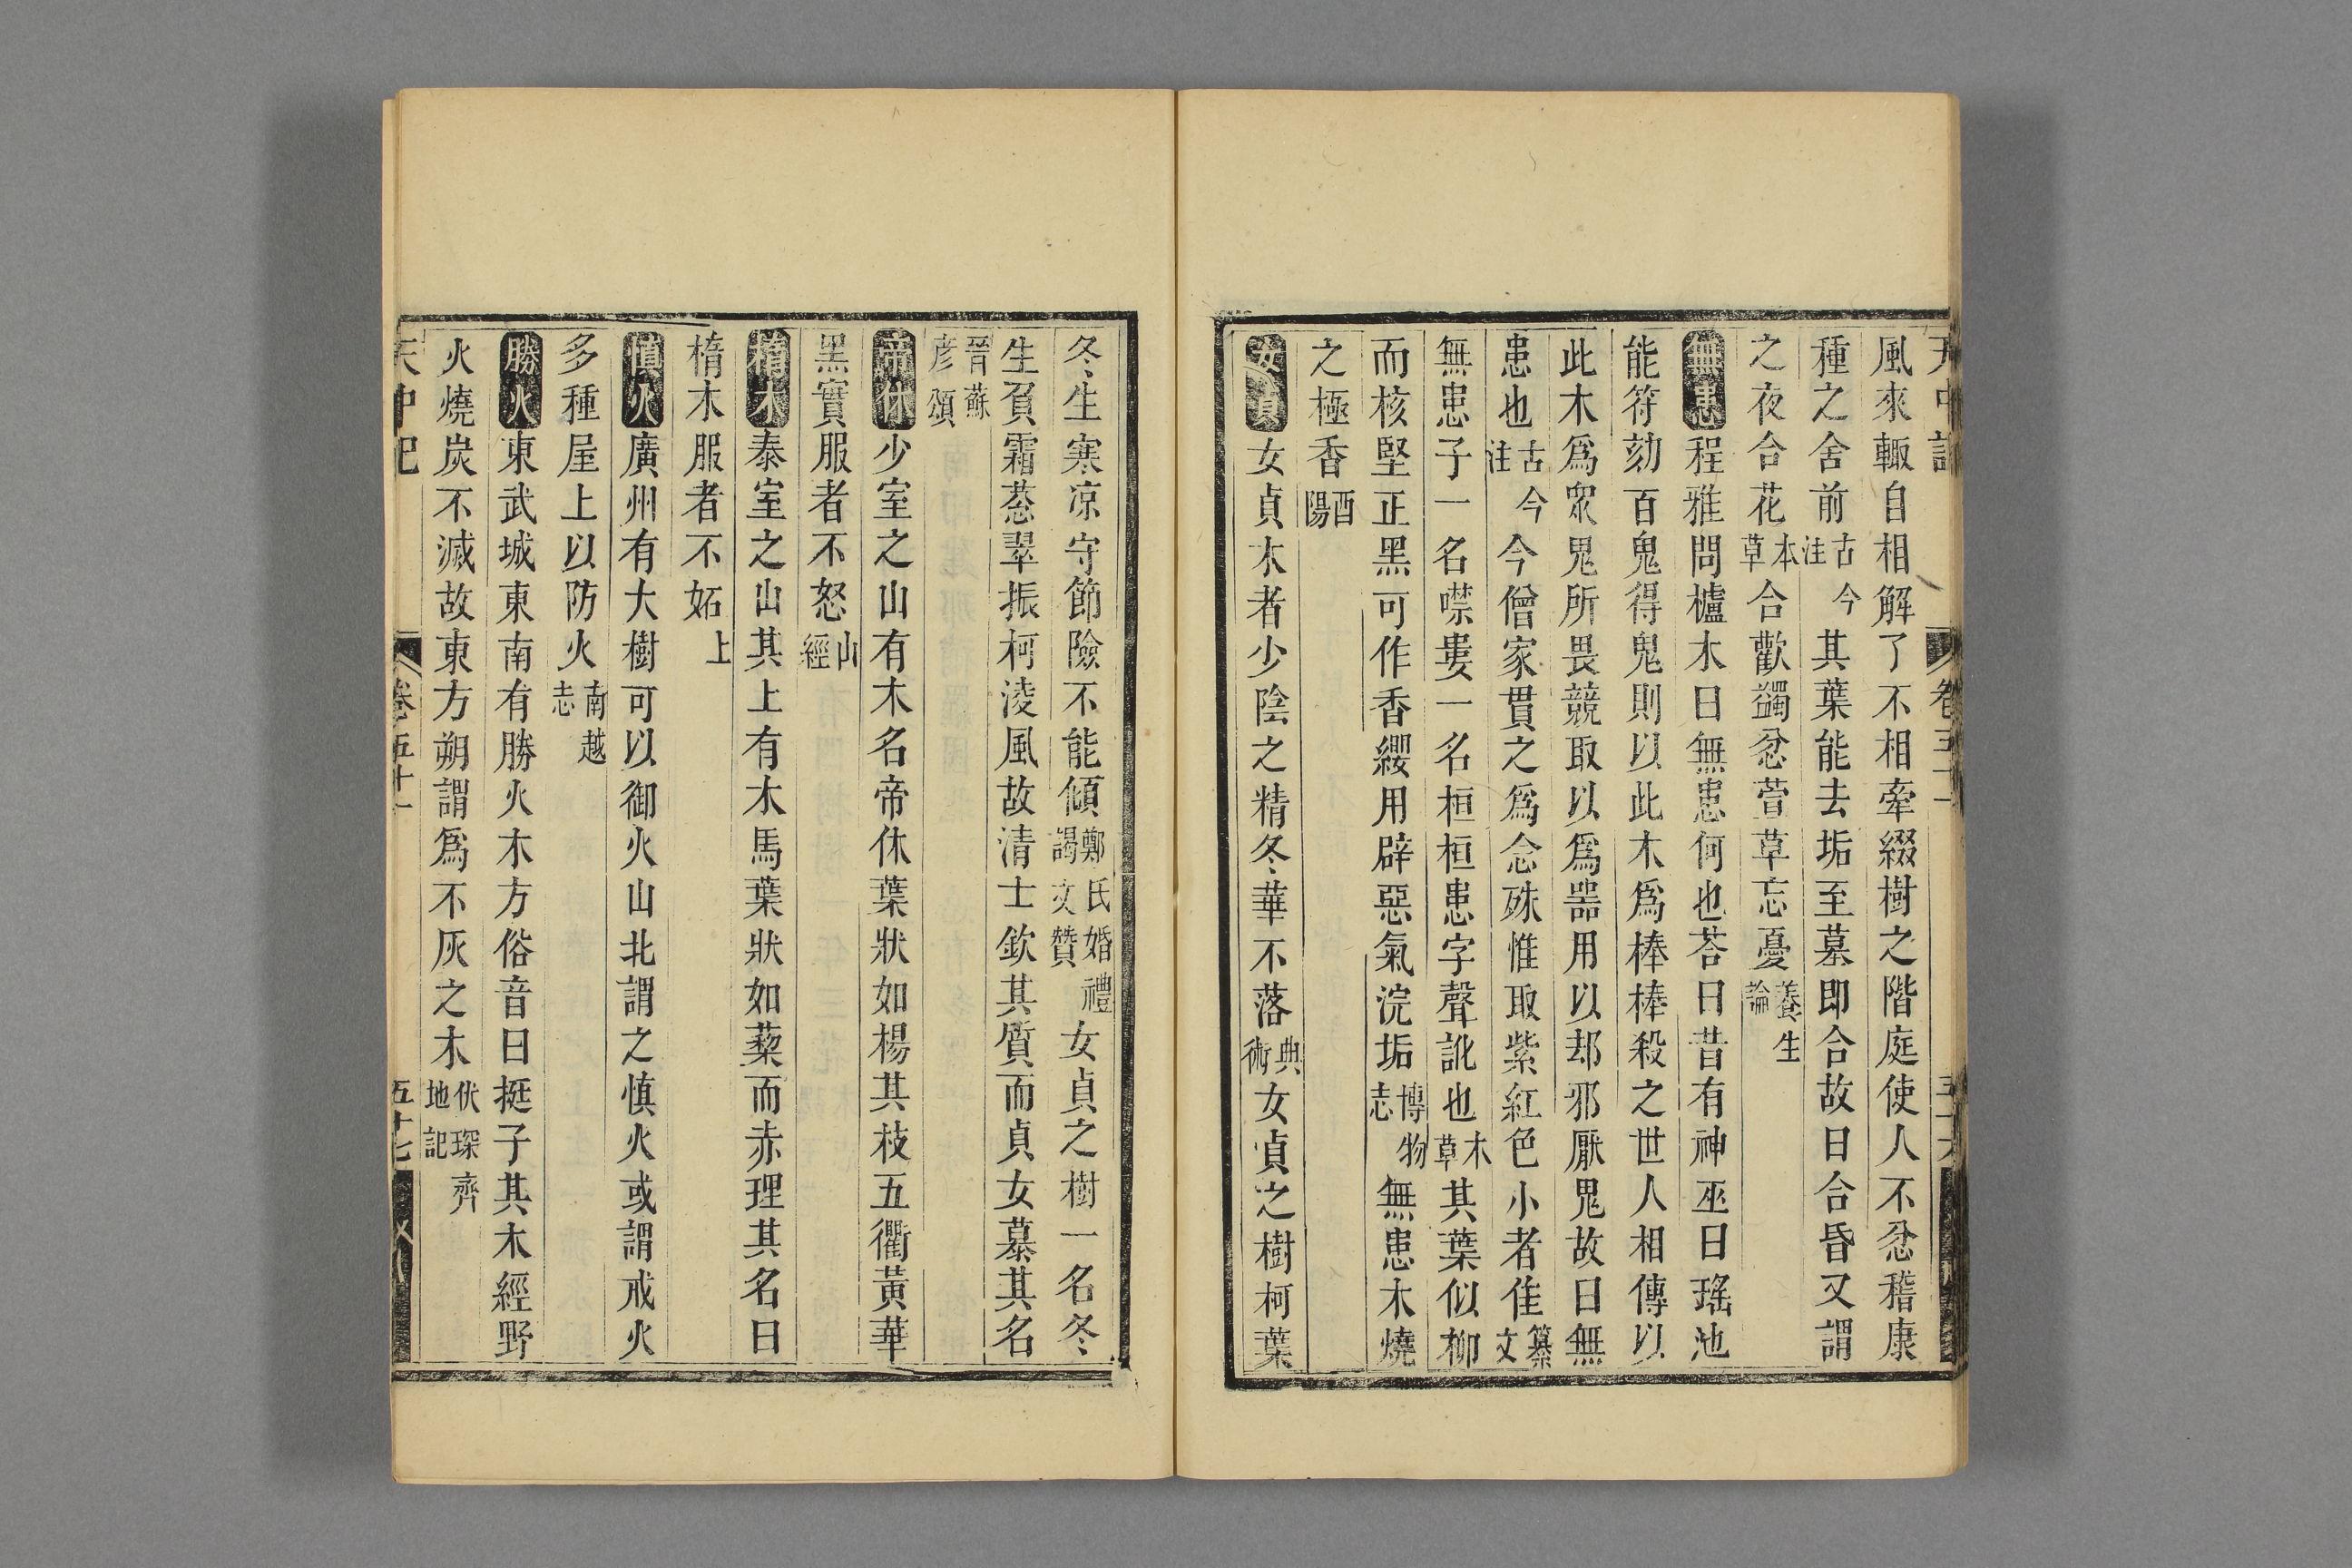 天中記 卷五十一 五十六
風來輙自相解了不相牽綴樹之階庭使人不忿嵇康
種之舍前古今注其葉能去垢至暮即合故曰合昏又謂
之夜合花本草合歡蠲忿萱草忘憂養生論
無患程雅問櫨木曰無患何也荅曰昔有神巫曰瑤池
能符劾百鬼得鬼則以此木爲棒棒殺之世人相傳以
此木爲衆鬼所畏競取以爲噐用以却邪厭鬼故曰無
患也古今注今僧家貫之爲念珠惟取紫紅色小者佳纂文
無患子一名噤婁一名桓桓患字聲訛也本草其葉似柳
而核堅正黑可作香纓用辟惡氣浣垢博物志無患木燒
之極香酉陽
女貞女貞木者少陰之精冬華不落典術女貞之樹柯葉
冬生寒凉守節險不能傾鄭氏婚禮謁文贊女貞之樹一名冬
生負霜葱翠振柯淩風故清士欽其質而貞女慕其名
晉蘇彦頌
帝休少室之山有木名帝休葉狀如楊其枝五衢黃華
黑實服者不怒山經
楕木泰室之山其上有木馬葉狀如蔾而赤理其名曰
楕木服者不妬上
慎火廣州有大樹可以御火山北謂之慎火或謂戒火
多種屋上以防火南越志
勝火東武城東南有勝火木方俗音曰挺子其木經野
火燒炭不滅故東方朔謂爲不灰之木伏琛齊地記
天中記 卷五十一 五十七